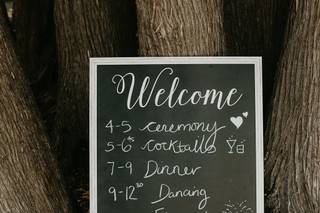 Welcome
4-5 Ceremony
5-6 Cocktails
7-9 Dinner
9-12³⁰ Dancing